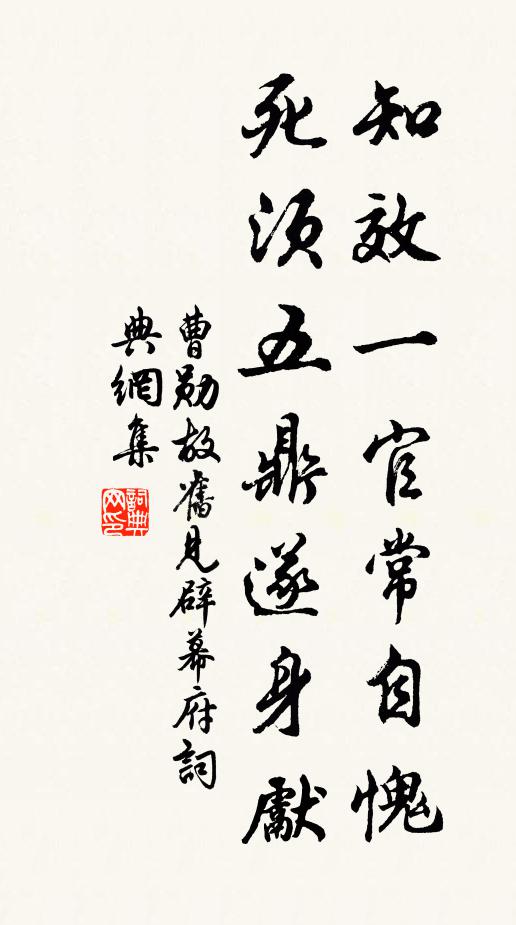 知效一官常自愧
死須五鼎遂身獻
曹勛故舊見辟幕府詞
典網集
詞典网印